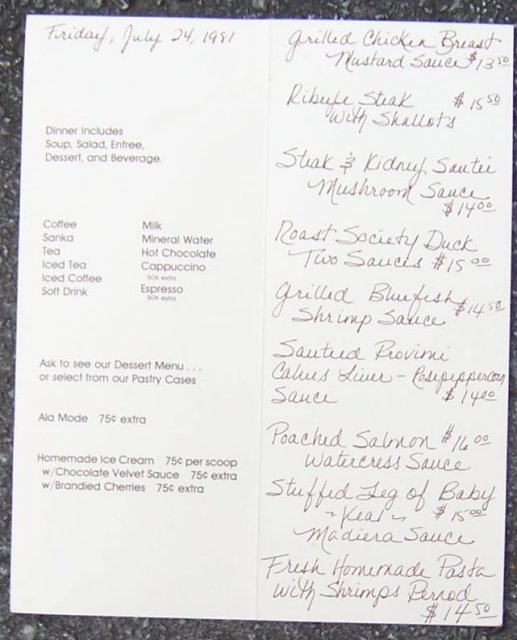 Friday, July 24, 1981
Dinner Includes
Soup, Salad, Entree,
Dessert, and Beverage.
Coffee
Sanka
Tea
Iced Tea
Iced Coffee
Soft Drink
Milk
Mineral Water
Hot Chocolate
Cappuccino
50¢ extra
Espresso
50¢ extra
Ask to see our Dessert Menu . . .
or select from our Pastry Cases
Ala Mode 75¢ extra
Homemade Ice Cream 75¢ per scoop
w/Chocolate Velvet Sauce 75¢ extra
w/Brandied Cherries 75¢ extra
Grilled Chicken Breast
Mustard Sauce $13.50
Ribeye Steak $15.50
with Shallots
Steak & Kidney Sautéi
Mushroom Sauce
$14.00
Roast Society Duck
Two Sauces $15.00
Grilled Bluefish $14.50
Shrimp Sauce
Sauteed Provimi
Calves Liver - Rosepeppercorn
Sauce $14.00
Poached Salmon $16.00
Watercress Sauce
Stuffed Leg of Baby
~ Veal ~ $15.00
Madiera Sauce
Fresh Homemade Pasta
with Shrimps Pernod
$14.50